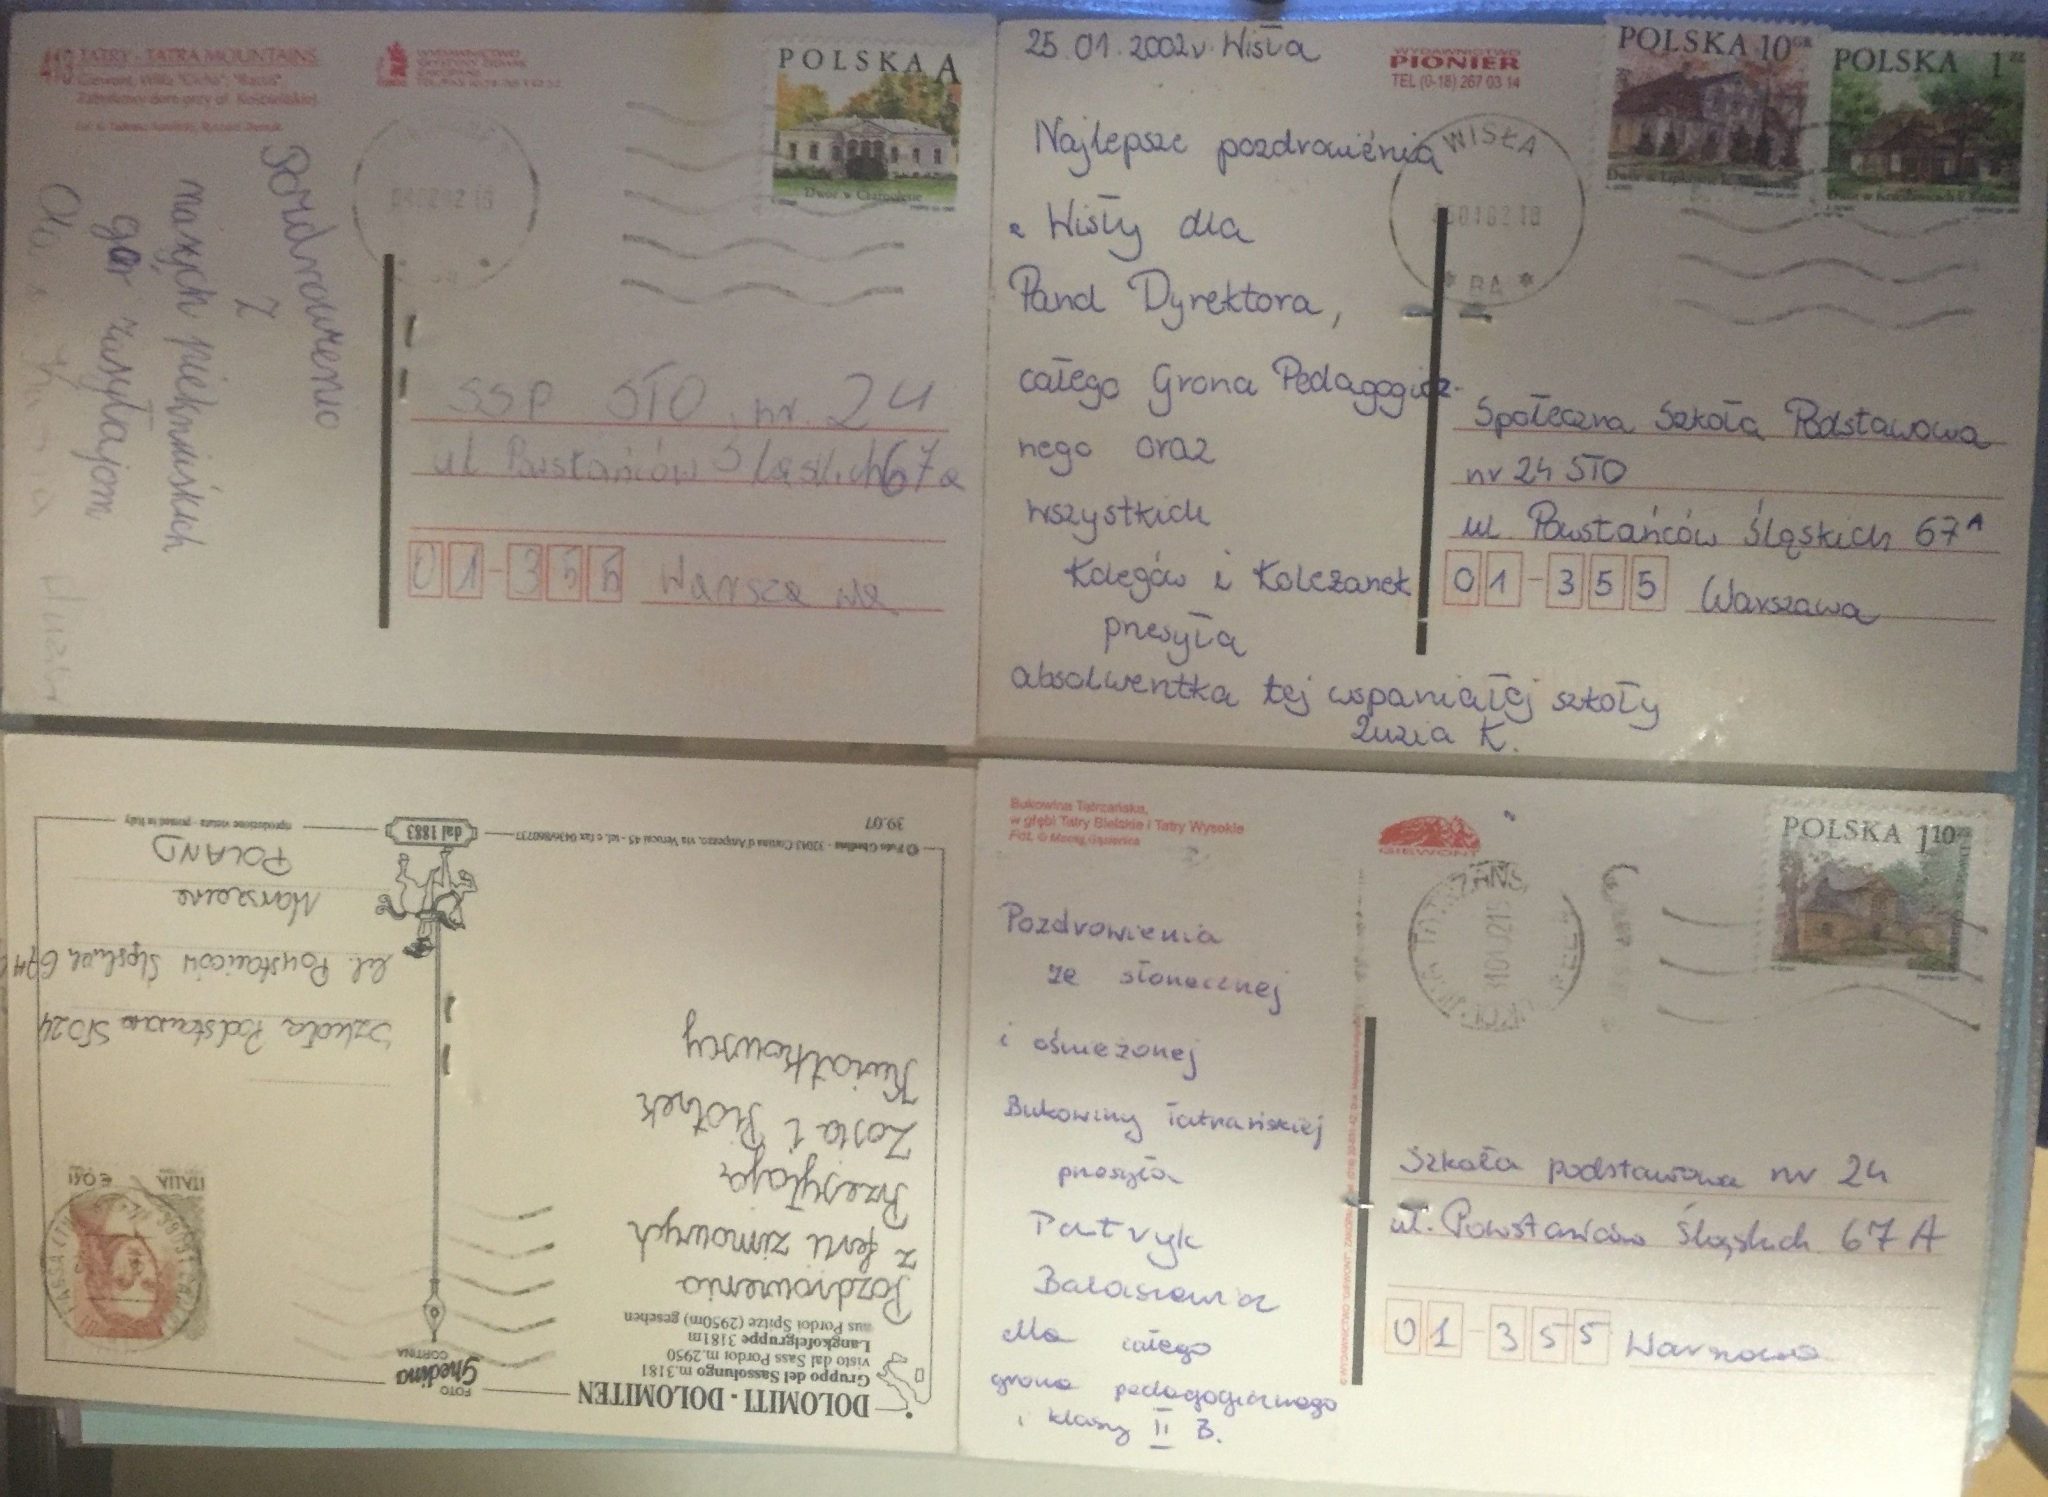 413 TATRY - TATRA MOUNTAINS
Giewont, Willa "Cicha",
Zabytkowy dom przy ul. Kościeliskiej
WYDAWNICTWO
POLSKA A
Dwór w
Pozdrowienio
z
naszych pięknniskich
gór zasyłajom
Ola i
SSP STO nr. 24
ul Powstańców Śląskich 67a
01-355 Warszawa
25.01.2002r. Wisła
WYDAWNICTWO
PIONIER
TEL (0-18) 267 03 14
POLSKA 10GR
POLSKA 1ZŁ
WISŁA
* BA *
Najlepsze pozdrowienia
z Wisły dla
Pana Dyrektora,
całego Grona Pedagogicz-
nego oraz
wszystkich
Kolegów i Koleżanek
przesyła
absolwentka tej wspaniałej szkoły
Zuzia K.
Społeczna Szkoła Podstawowa
nr 24 STO
ul. Powstańców Śląskich 67A
01-355 Warszawa
DOLOMITI - DOLOMITEN
Gruppo del Sassolungo m.3181
visto dal Sass Pordoi m.2950
Langkofelgruppe 3181m
aus Pordoi Spitze (2950m) gesehen
FOTO
Ghedina
CORTINA
Pozdrowienia
z ferii zimowych
Przesyłają
Zosia i Piotrek
Kwiatkowscy
ITALIA €0,41
Szkoła Podstawowa STO24
ul. Powstańców Śląskich 67A
Warszawa
POLAND
dal 1883
© Foto Ghedina - 32043 Cortina d'Ampezzo, via Verocai 45 - tel. e fax 0436/860737
riproduzione vietata - printed in Italy
39.07
Bukowina Tatrzańska,
w głębi Tatry Bielskie i Tatry Wysokie
Fot. © Maciej Gąsienica
GIEWONT
POLSKA 1,10ZŁ
Pozdrowienia
ze słonecznej
i ośnieżonej
Bukowiny Tatrzańskiej
przesyła
Patryk
dla całego
grona pedagogicznego
i klasy II B.
Szkoła podstawowa nr 24
ul. Powstańców Śląskich 67A
01-355 Warszawa